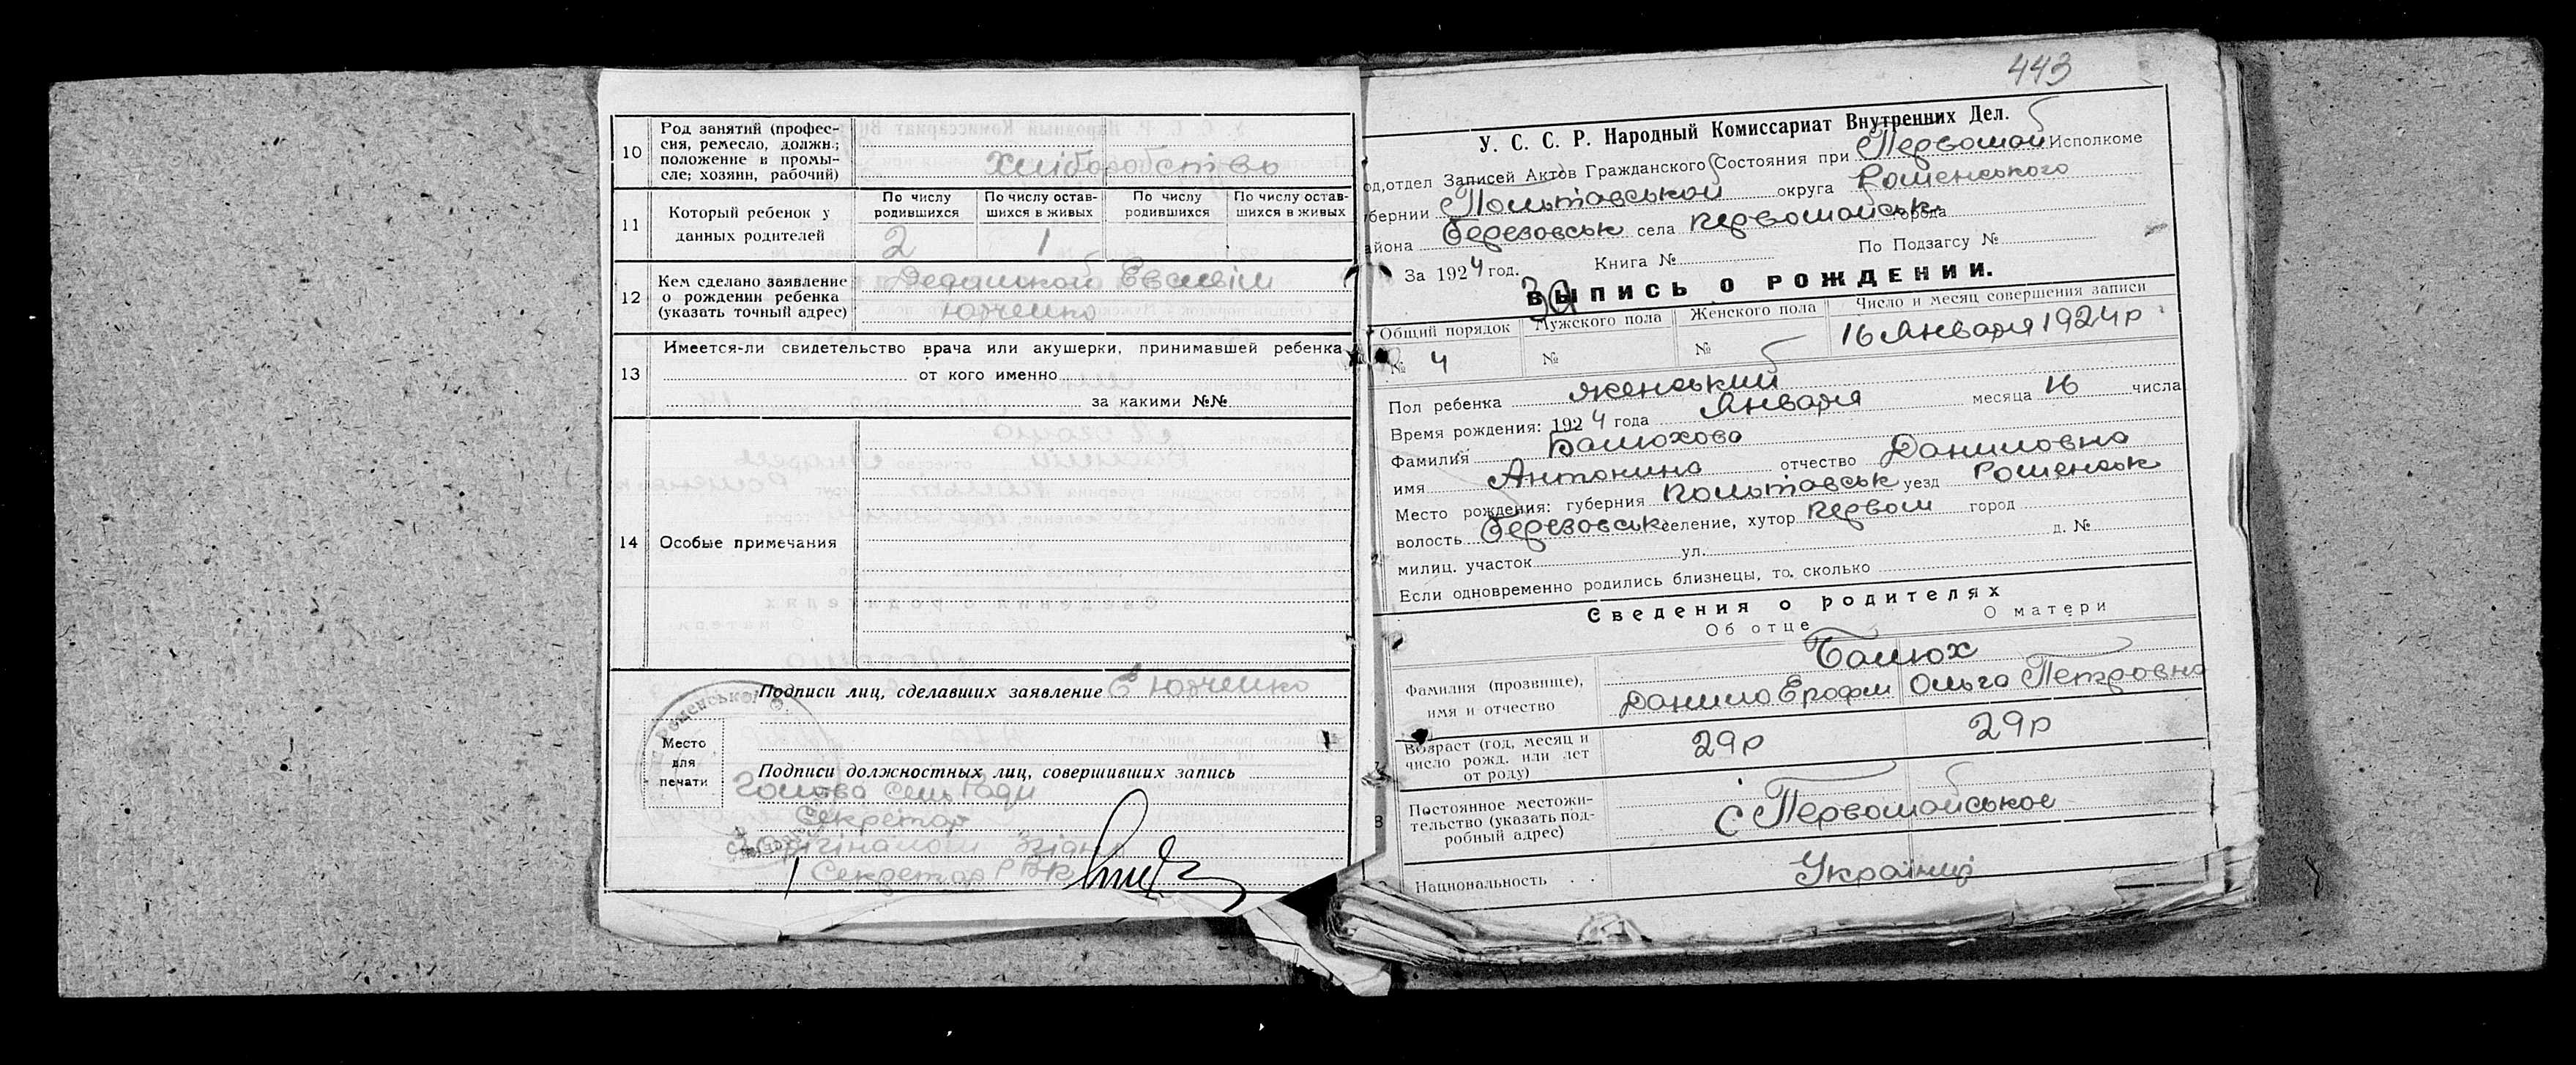 10 Род занятий (профес-
сия, ремесло, должн.;
положение в промы-
сле; хозяин, рабочий)
Хліборобство
11 Который ребенок у
данных родителей
По числу
родившихся
По числу остав-
шихся в живых
По числу
родившихся
По числу остав-
шихся в живых
2 1
12 Кем сделано заявление
о рождении ребенка
(указать точный адрес)
Юхченко
13 Имеется-ли свидетельство врача или акушерки, принимавшей ребенка
от кого именно
за какими №№
14 Особые примечания
Подписи лиц, сделавших заявление Є Юхченко
Место
для
печати
Подписи должностных лиц, совершивших запись
Голова Сельради
Секретар
З оригіналом згідно
Секретар РВК
443
У. С. С. Р. Народный Комиссариат Внутренних Дел.
од,отдел Записей Актов Гражданского Состояния при Первомай Исполкоме
бернии Полтавськой округа Роменського
айона Березовськ села Первомайськ города
За 1924 год. Книга № По Подзагсу №
ВЫПИСЬ О РОЖДЕНИИ.
Общий порядок Мужского пола Женского пола Число и месяц совершения записи
№ 4 № № 16 Января 1924 р
Пол ребенка женський
Время рождения: 1924 года Января месяца 16 числа
Фамилия Балюхова
имя Антонина отчество Даниловна
Место рождения: губерния Полтавськ уезд Роменськ
волость Березовськ селение, хутор Первом город
милиц. участок ул. д. №
Если одновременно родились близнецы, то. сколько
Сведения о родителях
Об отце О матери
Балюх
Фамилия (прозвище),
имя и отчество
Данило Ерофеи Ольга Петровна
Возраст (год, месяц и
число рожд. или лет
от роду)
29р 29р
8 Постоянное местожи-
тельство (указать под-
робный адрес)
с Первомайськое
Национальность Українці